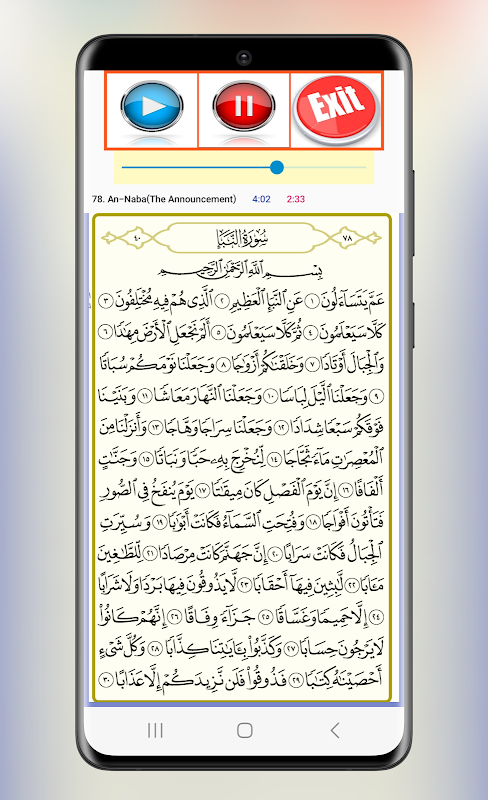 Exit
78. An-Naba(The Announcement) 4:02 2:33
٧٨ سُورَةُ النَّبَإِ ٤٠
بِسْمِ اللَّهِ الرَّحْمَٰنِ الرَّحِيمِ
عَمَّ يَتَسَاءَلُونَ ١ عَنِ النَّبَإِ الْعَظِيمِ ٢ الَّذِي هُمْ فِيهِ مُخْتَلِفُونَ ٣
كَلَّا سَيَعْلَمُونَ ٤ ثُمَّ كَلَّا سَيَعْلَمُونَ ٥ أَلَمْ نَجْعَلِ الْأَرْضَ مِهَٰدًا ٦
وَالْجِبَالَ أَوْتَادًا ٧ وَخَلَقْنَٰكُمْ أَزْوَٰجًا ٨ وَجَعَلْنَا نَوْمَكُمْ سُبَاتًا
٩ وَجَعَلْنَا الَّيْلَ لِبَاسًا ١٠ وَجَعَلْنَا النَّهَارَ مَعَاشًا ١١ وَبَنَيْنَا
فَوْقَكُمْ سَبْعًا شِدَادًا ١٢ وَجَعَلْنَا سِرَاجًا وَهَّاجًا ١٣ وَأَنزَلْنَا مِنَ
الْمُعْصِرَٰتِ مَاءً ثَجَّاجًا ١٤ لِّنُخْرِجَ بِهِۦ حَبًّا وَنَبَاتًا ١٥ وَجَنَّٰتٍ
أَلْفَافًا ١٦ إِنَّ يَوْمَ الْفَصْلِ كَانَ مِيقَٰتًا ١٧ يَوْمَ يُنفَخُ فِي الصُّورِ
فَتَأْتُونَ أَفْوَاجًا ١٨ وَفُتِحَتِ السَّمَاءُ فَكَانَتْ أَبْوَٰبًا ١٩ وَسُيِّرَتِ
الْجِبَالُ فَكَانَتْ سَرَابًا ٢٠ إِنَّ جَهَنَّمَ كَانَتْ مِرْصَادًا ٢١ لِّلطَّٰغِينَ
مَـَٔابًا ٢٢ لَّٰبِثِينَ فِيهَا أَحْقَابًا ٢٣ لَّا يَذُوقُونَ فِيهَا بَرْدًا وَلَا شَرَابًا
٢٤ إِلَّا حَمِيمًا وَغَسَّاقًا ٢٥ جَزَاءً وِفَاقًا ٢٦ إِنَّهُمْ كَانُوا
لَا يَرْجُونَ حِسَابًا ٢٧ وَكَذَّبُوا بِـَٔايَٰتِنَا كِذَّابًا ٢٨ وَكُلَّ شَيْءٍ
أَحْصَيْنَٰهُ كِتَٰبًا ٢٩ فَذُوقُوا فَلَن نَّزِيدَكُمْ إِلَّا عَذَابًا ٣٠